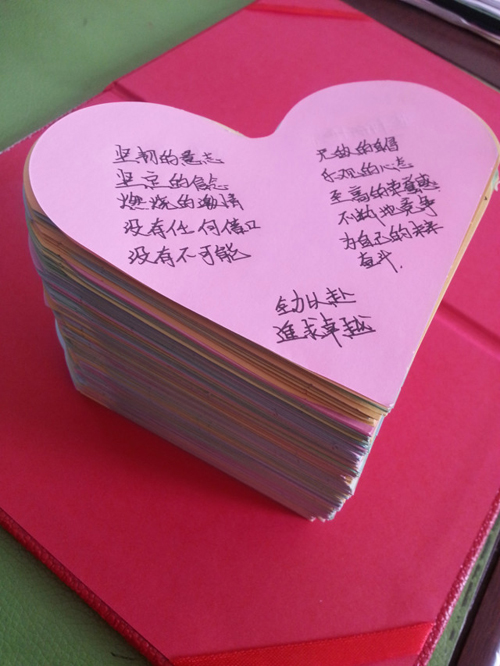 坚韧的意志
坚定的信念
燃烧的激情
没有任何借口
没有不可能
无的的自信
乐观的心态
至高的荣誉感
不断地竞争
为自己的未来
奋斗.
全力以赴
追求卓越